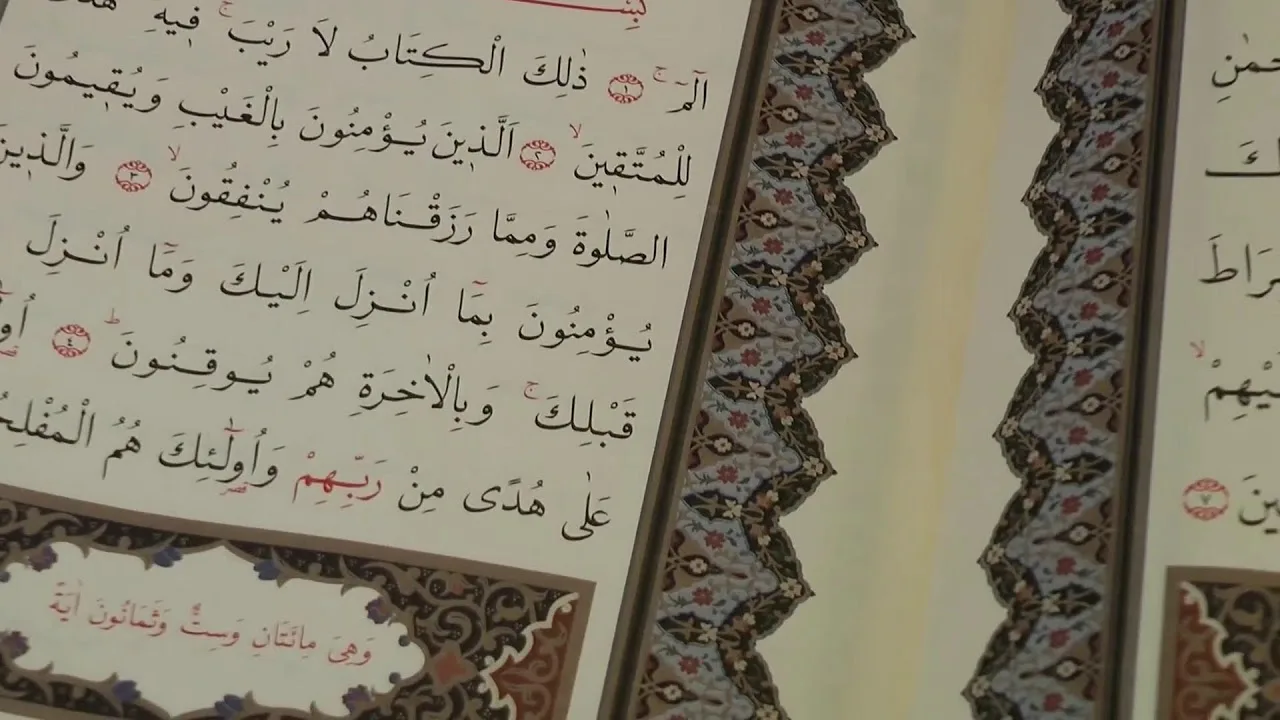 الٓمٓ ۚ ﴿١﴾ ذٰلِكَ الْكِتَابُ لَا رَيْبَ ۚ فٖيهِ
لِلْمُتَّقٖينَ ۙ ﴿٢﴾ اَلَّذٖينَ يُؤْمِنُونَ بِالْغَيْبِ وَيُقٖيمُونَ
الصَّلٰوةَ وَمِمَّا رَزَقْنَاهُمْ يُنْفِقُونَ ۙ ﴿٣﴾ وَالَّذٖينَ
يُؤْمِنُونَ بِمَٓا اُنْزِلَ اِلَيْكَ وَمَٓا اُنْزِلَ
قَبْلِكَ ۚ وَبِالْاٰخِرَةِ هُمْ يُوقِنُونَ ؕ ﴿٤﴾
عَلٰى هُدًى مِنْ رَبِّهِمْ وَاُولٰٓئِكَ هُمُ
وَهِيَ مِائَتَانِ وَسِتٌّ وَثَمَانُونَ اٰيَةً